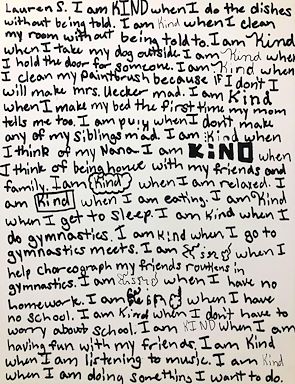 Lauren S. I am KIND when I do the dishes
without being told. I am Kind when I clean
my room without being told to. I am Kind
when I take my dog outside. I am Kind when
I hold the door for someone. I am Kind when
I clean my paintbrush because if I don't I
will make mrs. Uecker mad. I am Kind
when I make my bed the first time my mom
tells me too. I am when I don't make
any of my siblings mad. I am Kind when
I think of my Nana. I am KiND when
I think of being home with my friends and
family. I am Kind when I am relaxed. I
am Kind when I am eating. I am Kind
when I get to sleep. I am Kind when I
do gymnastics. I am Kind when I go to
gymnastics meets. I am when I
help choreograph my friends routines in
gymnastics. I am when I have no
homework. I am when I have
no school. I am Kind when I don't have to
worry about school. I am KIND when I am
having fun with my friends. I am Kind
when I am listening to music. I am Kind
when I am doing something I want to do.